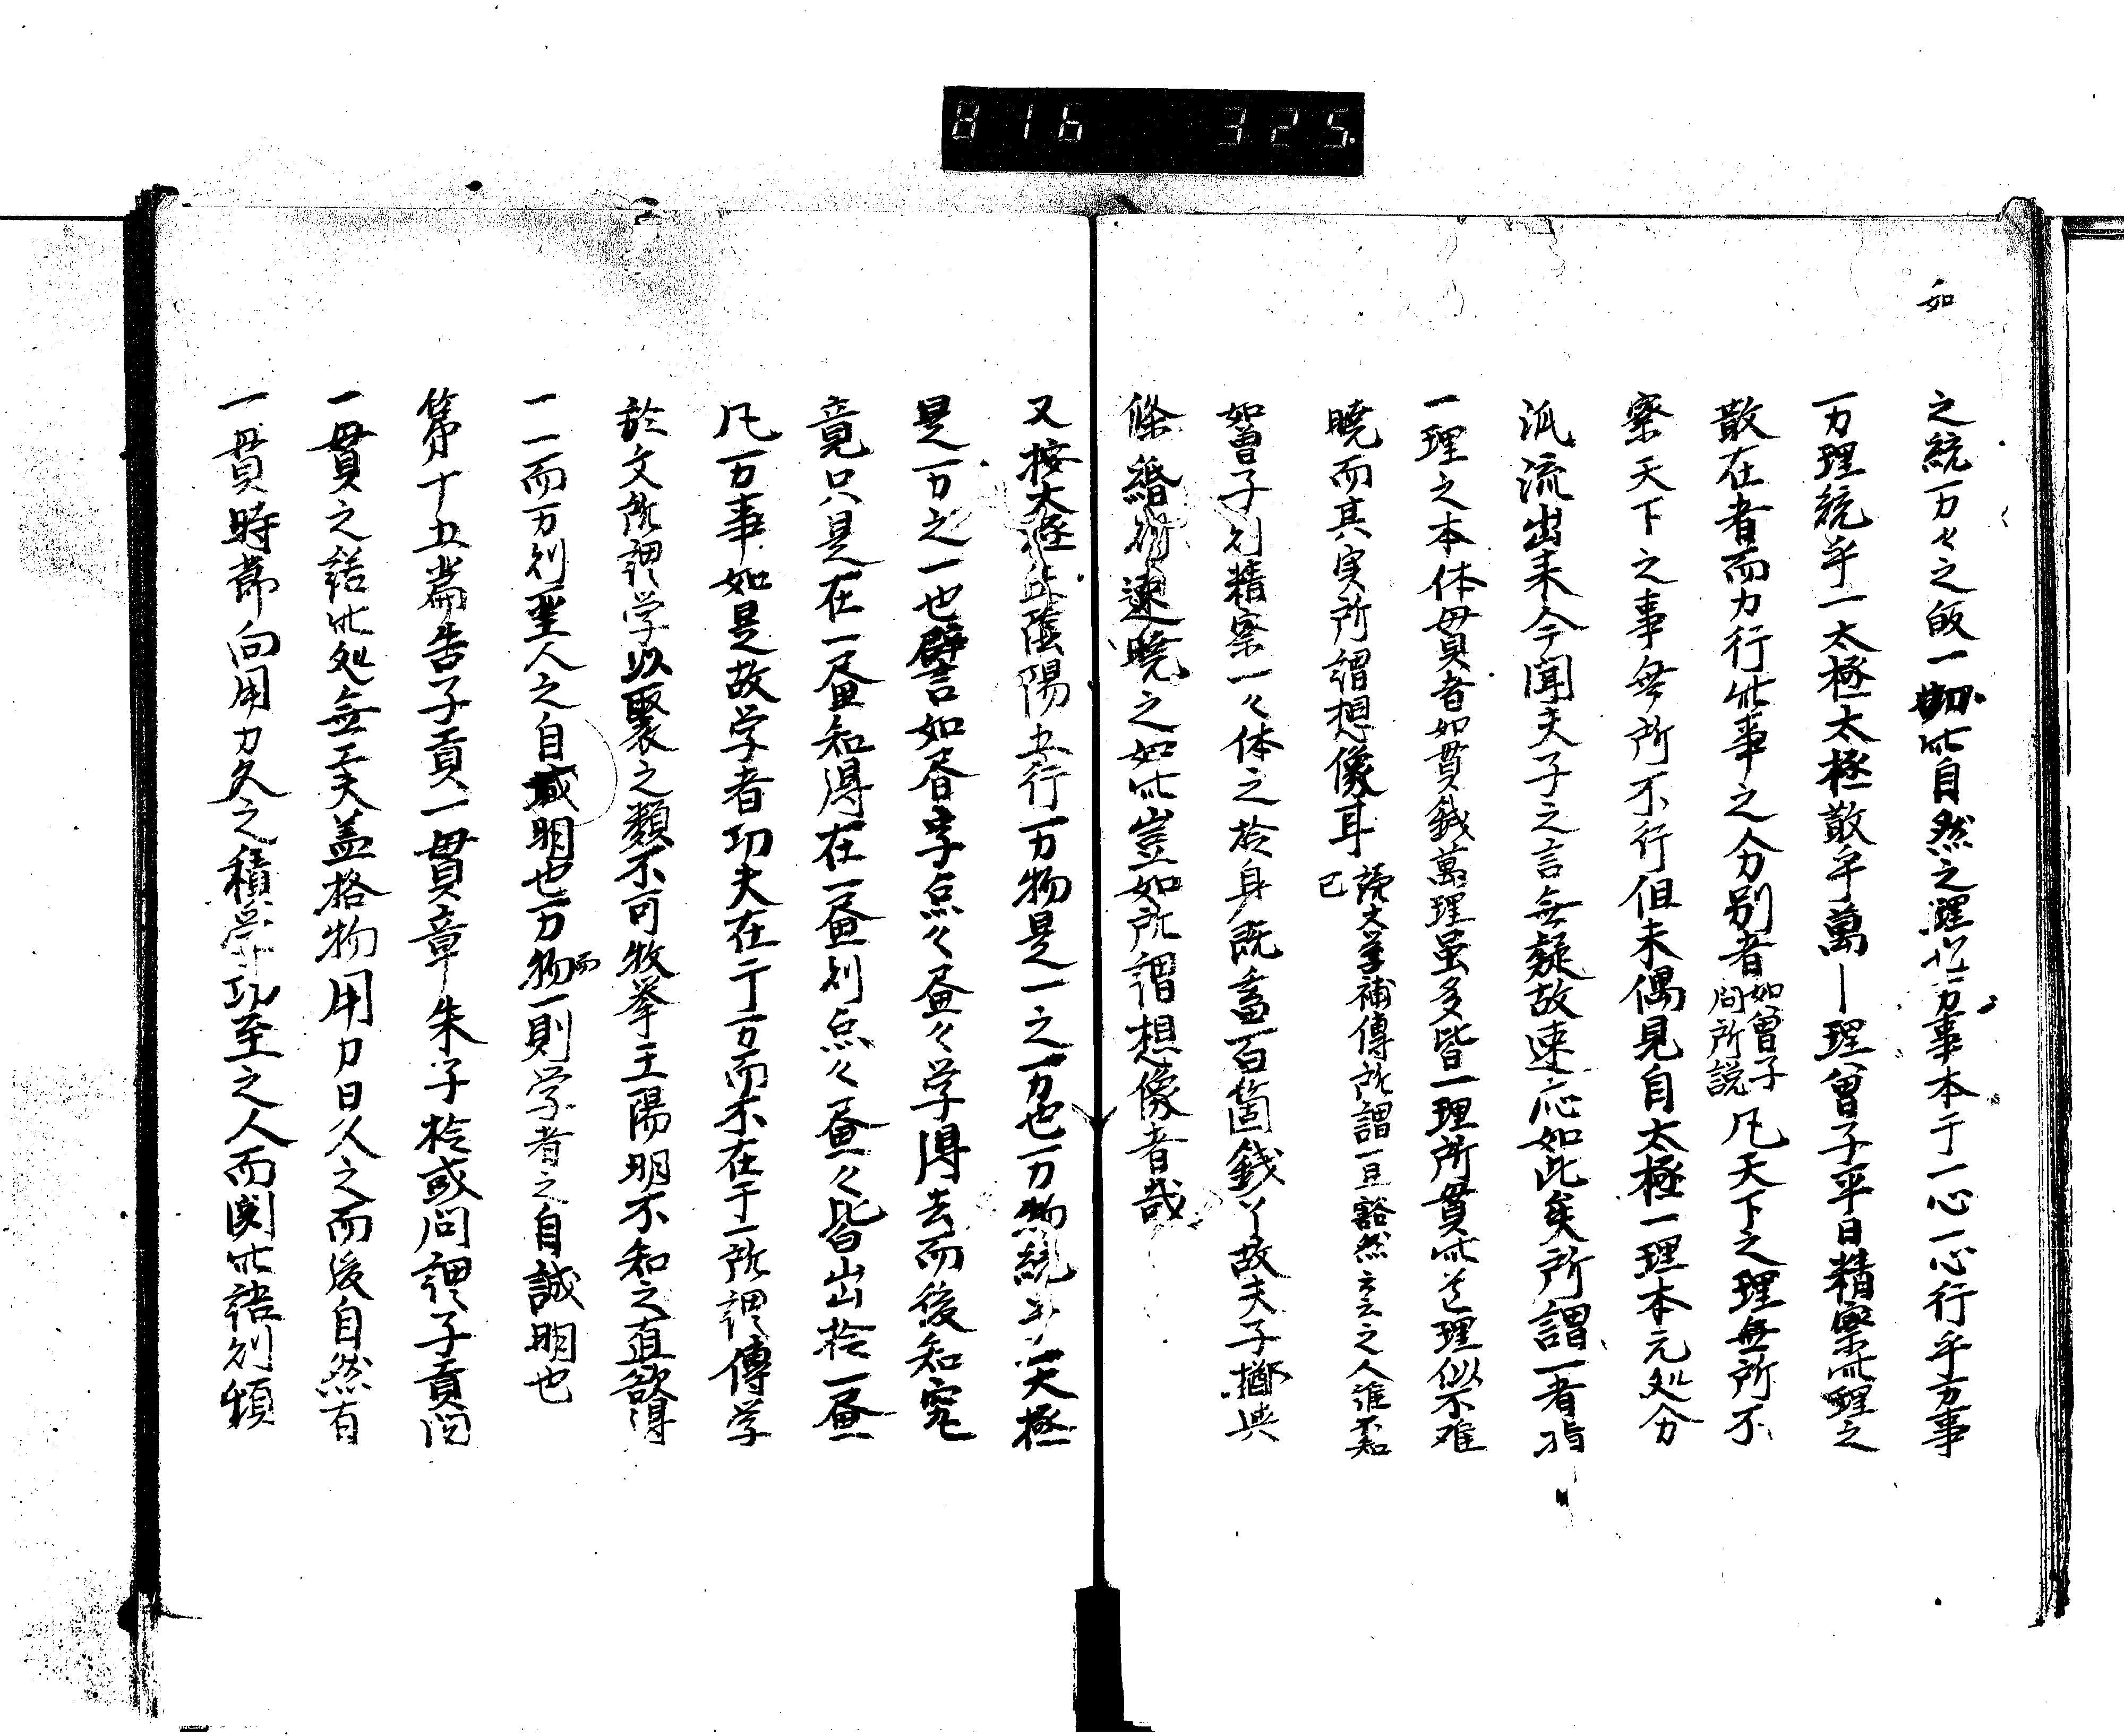 816 325.
如
之統万々之皈一如此自然之理也万事本于一心一心行乎万事
万理統乎一太極太極散乎萬一理曾子平日精察此理之
散在者而力行此事之分别者如曾子問所説凡天下之理無所不
察天下之事無所不行但未偶見自太極一理本元処分
派流出来今聞夫子之言無疑故速応如此矣所謂一者指
一理之本体貫者如貫錢萬理虽多皆一理所貫此道理似不难
曉而其实所謂想像耳已読大学補傳所謂一旦豁然云云之人誰不知
如曾子則精察一々体之於身既畜百箇錢了故夫子擲與
條緡則速曉之如此豈如所謂想像者哉
又按太極陰陽五行万物是一之万也万物統乎一太極
是万之一也譬如習字点々画々学得去而後知究
竟只是在一画知得在一画則点々画々皆出於一画
凡万事如是故学者功夫在于万而不在于一所謂博学
於文所謂学以聚之類不可枚挙王陽明不知之直欲得
一一而万則聖人之自誠明也万物而一則学者之自誠明也
第十五篇告子貢一貫章朱子於或問謂子貢問
一貫之語此処無工夫盖格物用力日久之而後自然有
一貫時節向用力久之積学功至之人而関此語則頓